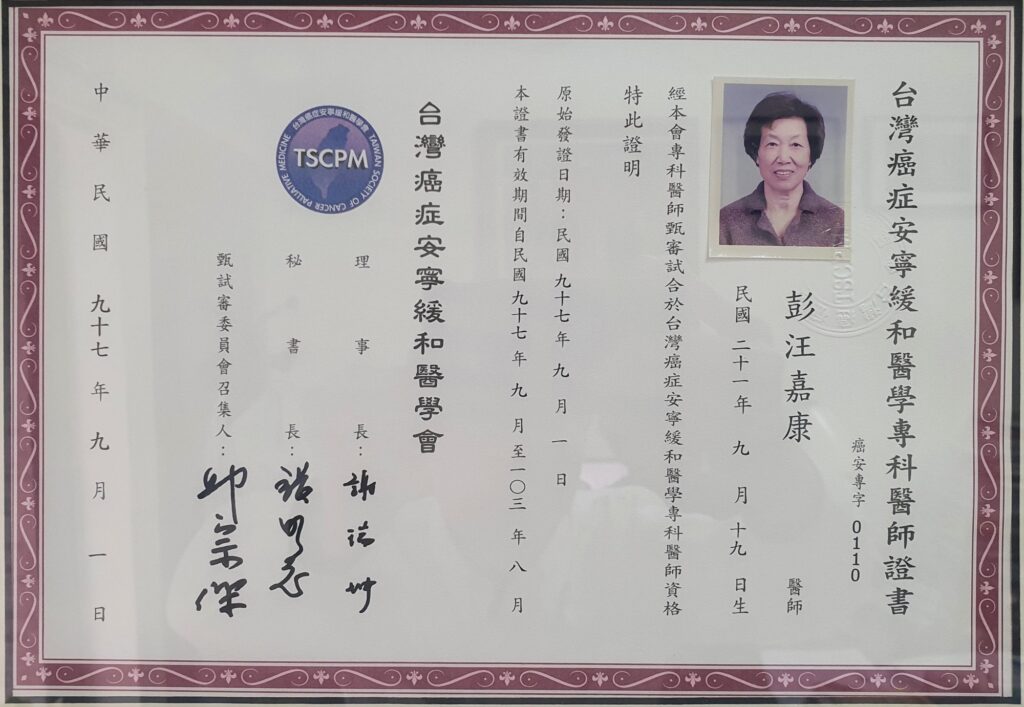 台灣癌症安寧緩和醫學專科醫師證書
癌安專字 0110
彭汪嘉康 醫師
民國 二十一年 九 月 十九 日生
經本會專科醫師甄審試合於台灣癌症安寧緩和醫學專科醫師資格
特此證明
原始發證日期：民國 九十七年 九 月 一 日
本證書有效期間自民國九十七年 九 月至一〇三 年 八 月
台灣癌症安寧緩和醫學會
台灣癌症安寧緩和醫學會 TAIWAN SOCIETY OF CANCER PALLIATIVE MEDICINE
TSCPM
理事長：
秘書長：
甄試審委員會召集人：
中華民國 九十七 年 九 月 一 日